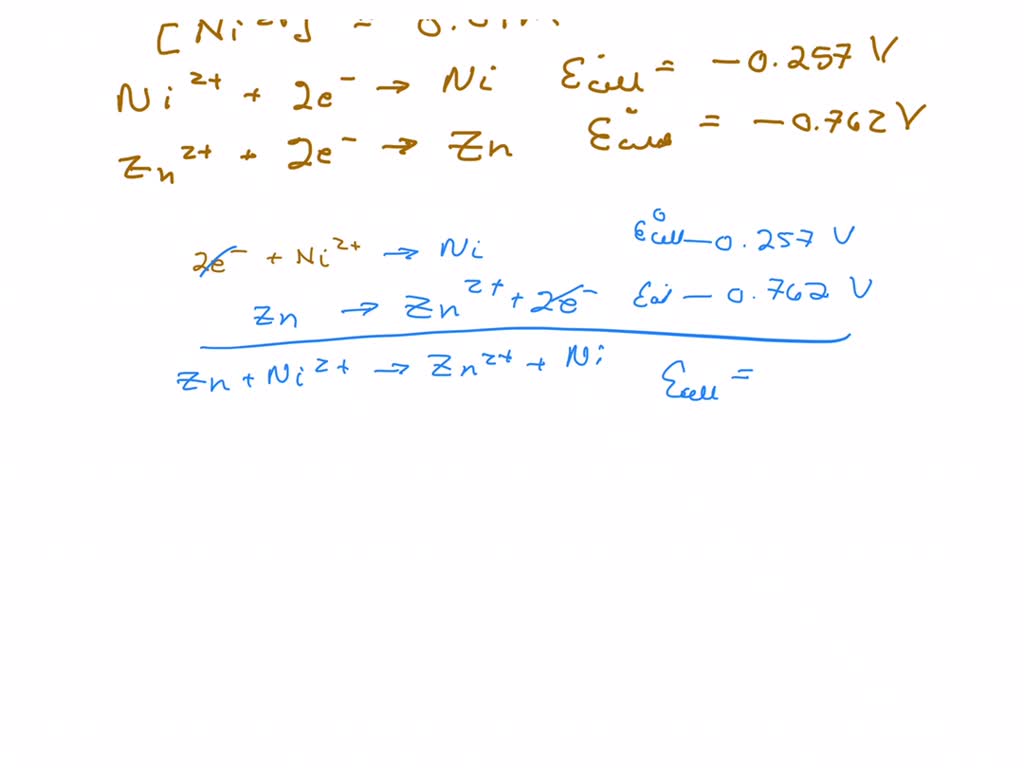 [Ni²⁺] = 0.01M
Ni²⁺ + 2e⁻ → Ni   Ɛ°cell = -0.257 V
Zn²⁺ + 2e⁻ → Zn   Ɛ°cell = -0.762 V
2e⁻ + Ni²⁺ → Ni   Ɛ⁰cell -0.257 V
Zn → Zn²⁺ + 2e⁻   Ɛcel -0.762 V
Zn + Ni²⁺ → Zn²⁺ + Ni   Ɛcell =